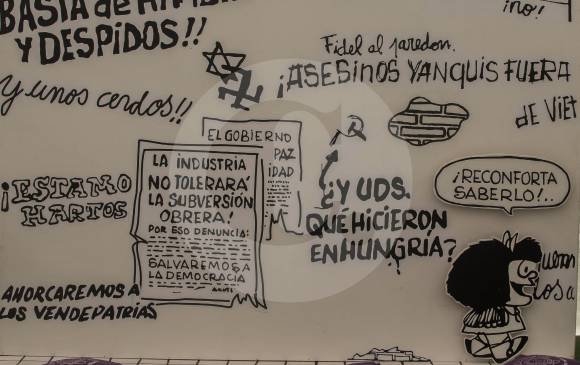 BASTA de HAMBRE
Y DESPIDOS!!
ino!
Fidel al paredon.
¡ASESINOS YANQUIS FUERA
de VIET
Y unos cerdos!!
EL GOBIERNO
PAZ
IDAD
LA INDUSTRIA
NO TOLERARÁ
LA SUBVERSIÓN
OBRERA!
POR ESO DENUNCIA:
SALVAREMOS A
LA DEMOCRACIA
¡ESTAMO
HARTOS
¿Y UDS.
QUÉ HICIERON
EN HUNGRÍA?
¡RECONFORTA
SABERLO!..
AHORCAREMOS A
LOS VENDEPATRIAS